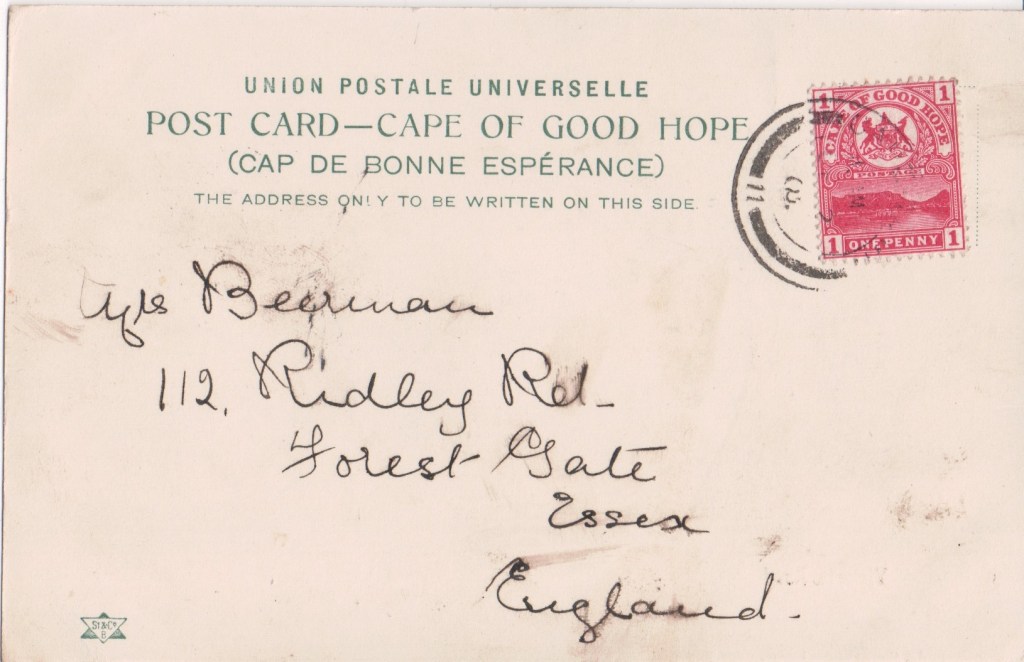 UNION POSTALE UNIVERSELLE
POST CARD—CAPE OF GOOD HOPE
(CAP DE BONNE ESPÉRANCE)
THE ADDRESS ONLY TO BE WRITTEN ON THIS SIDE.
1 CAPE OF GOOD HOPE 1
POSTAGE
1 ONE PENNY 1
11
Mrs Beerman
112, Ridley Rd.
Forest Gate
Essex
England.
St & Co
8